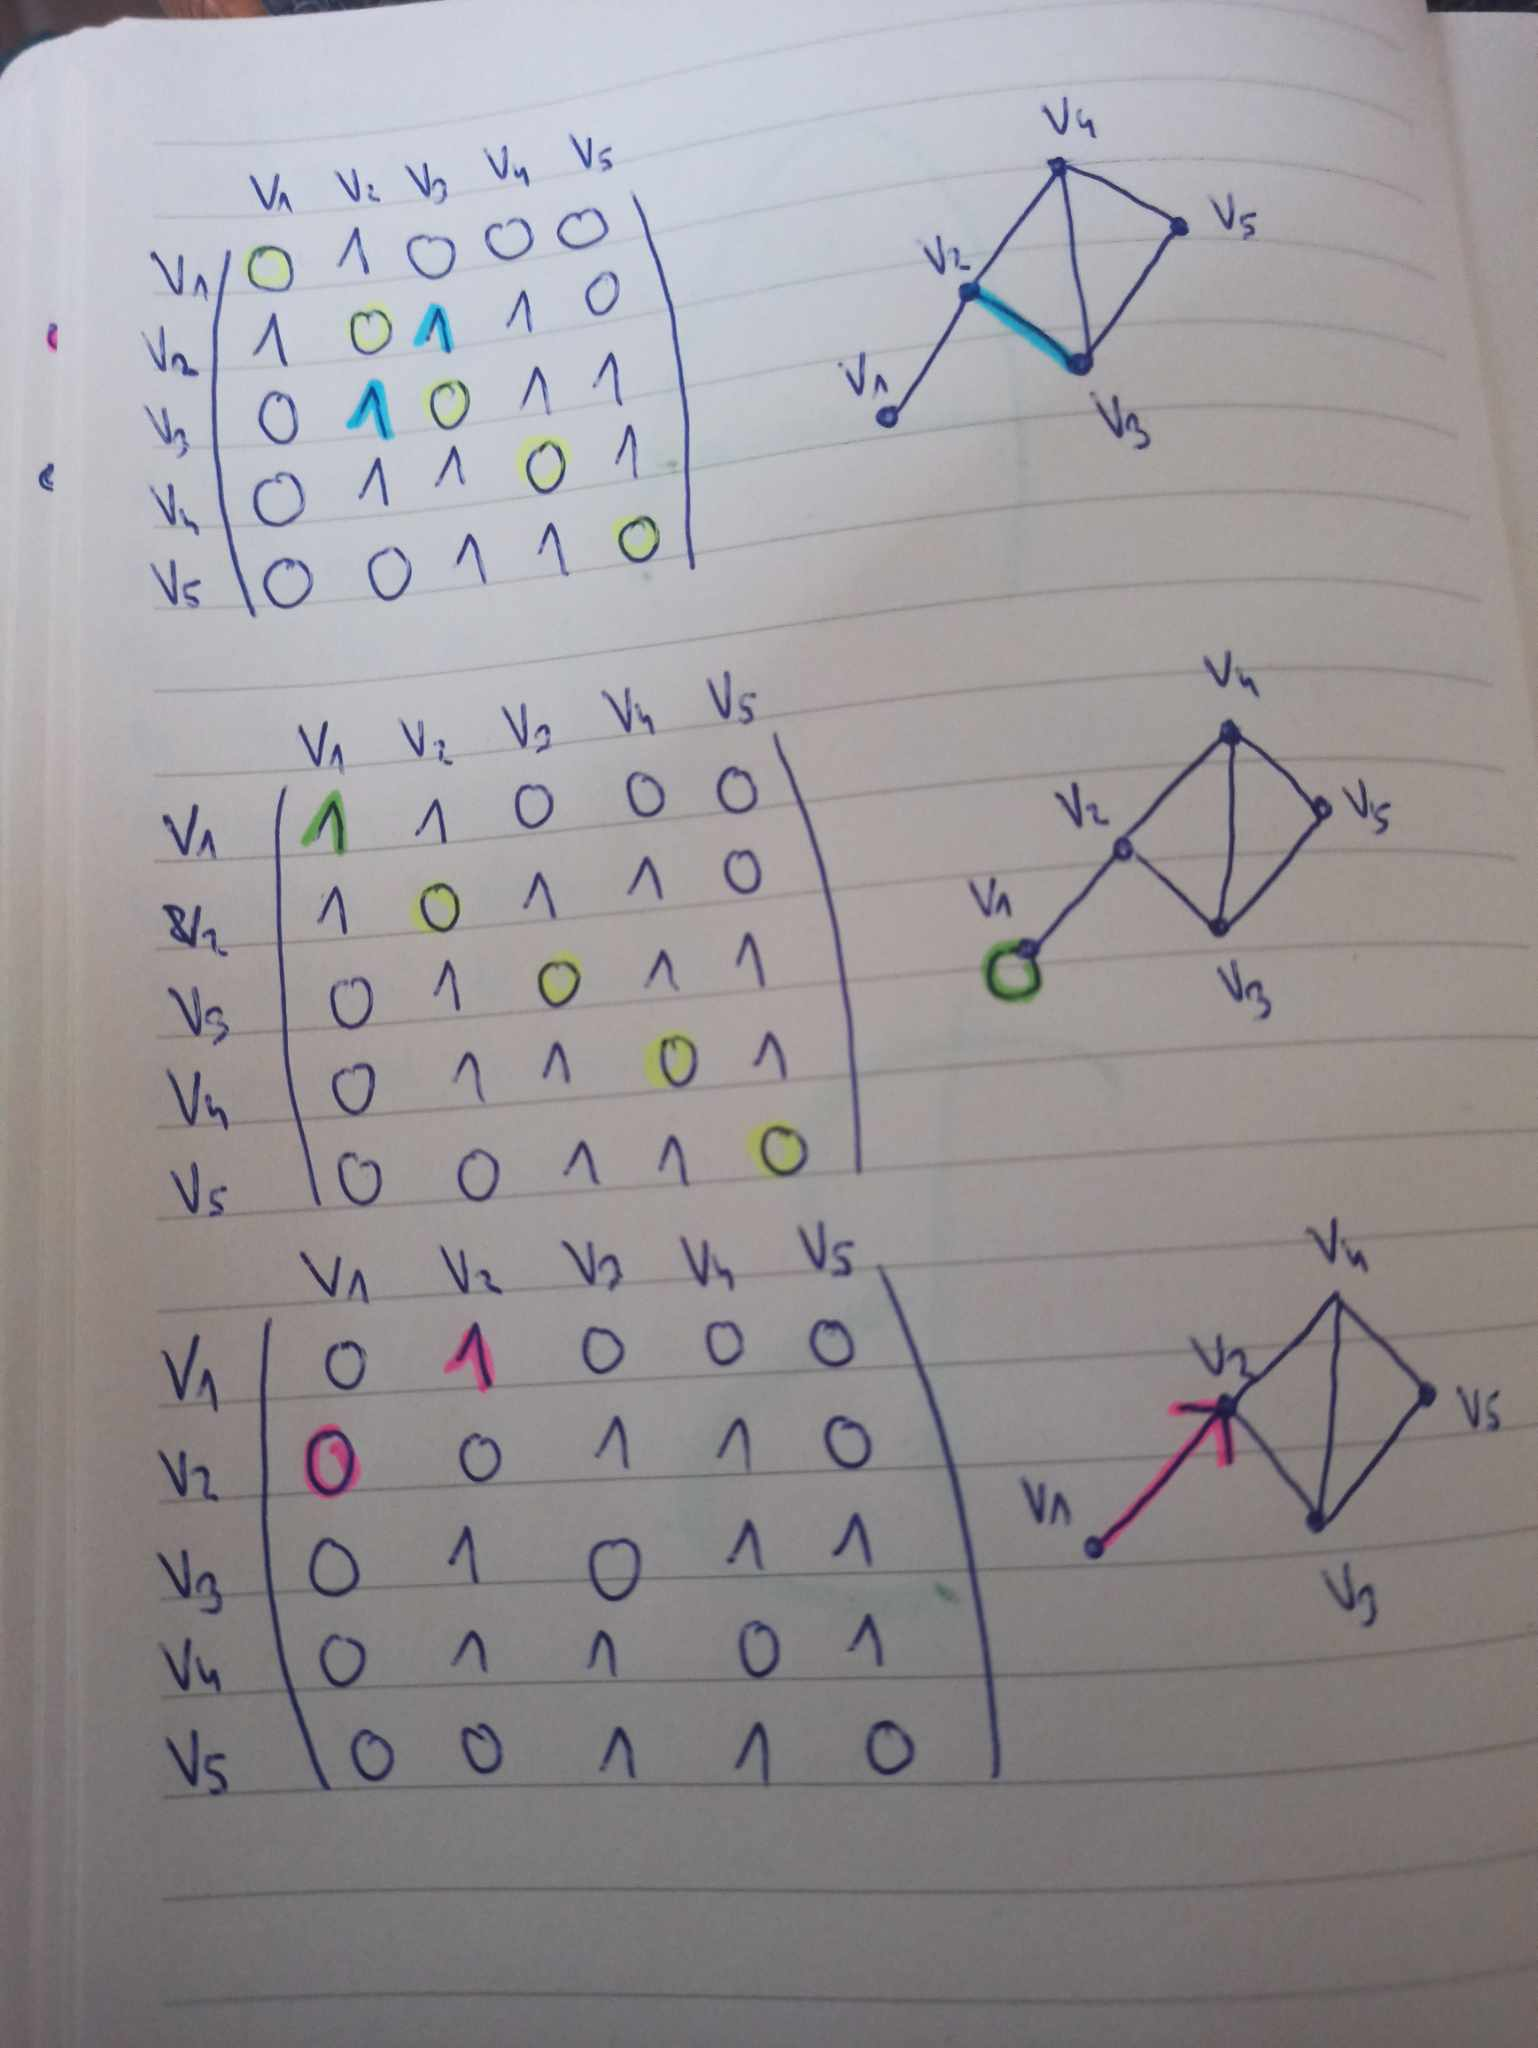 V1 V2 V3 V4 V5
V1 0 1 0 0 0
V2 1 0 1 1 0
V3 0 1 0 1 1
V4 0 1 1 0 1
V5 0 0 1 1 0
V4
V5
V2
V1
V3
V1 V2 V3 V4 V5
V1 1 1 0 0 0
V2 1 0 1 1 0
V3 0 1 0 1 1
V4 0 1 1 0 1
V5 0 0 1 1 0
V4
V2 V5
V1
V3
V1 V2 V3 V4 V5
V1 0 1 0 0 0
V2 0 0 1 1 0
V3 0 1 0 1 1
V4 0 1 1 0 1
V5 0 0 1 1 0
V4
V2
V5
V1
V3